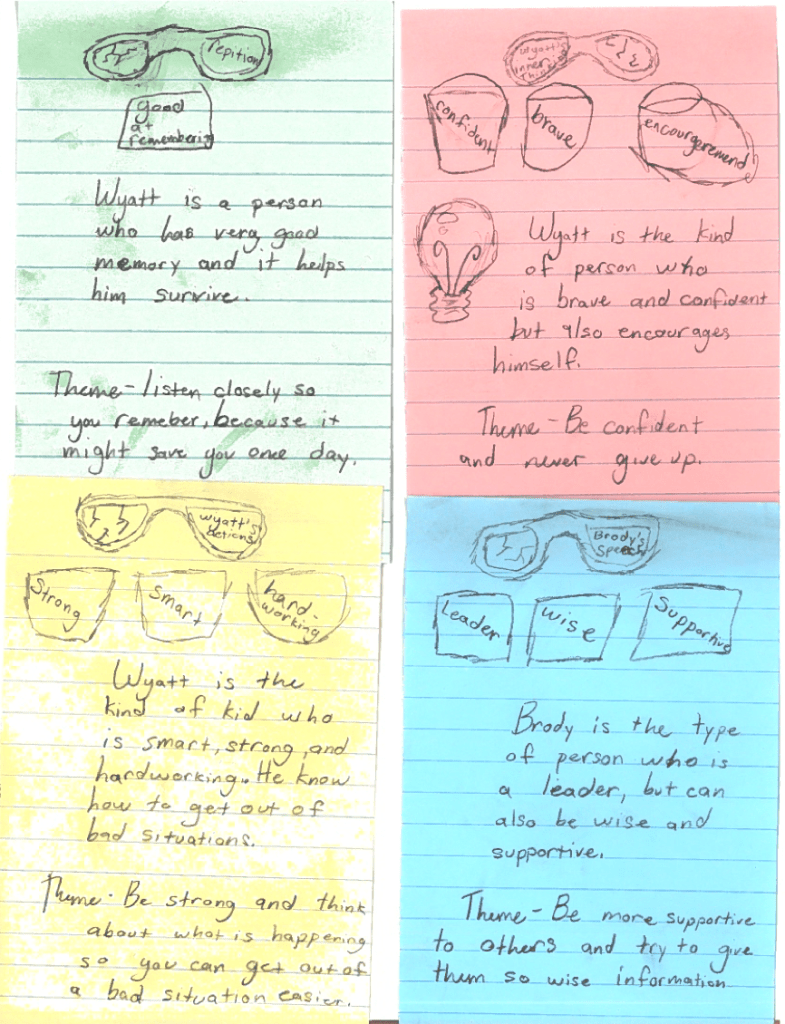 repition
good
at
remembering
Wyatt is a person
who has very good
memory and it helps
him survive.
Theme - listen closely so
you remeber, because it
might save you once day.
Wyatt's
inner
thinking
confident
brave
encourgeremend
Wyatt is the kind
of person who
is brave and confident
but also encourages
himself.
Theme - Be confident
and never give up.
Wyatt's
actions
Strong
Smart
hard-
working
Wyatt is the
kind of kid who
is smart, strong, and
hardworking. He know
how to get out of
bad situations.
Theme - Be strong and think
about what is happening
so you can get out of
a bad situation easier.
Brody's
Speech
Leader
wise
Supportive
Brody is the type
of person who is
a leader, but can
also be wise and
supportive.
Theme - Be more supportive
to others and try to give
them so wise information